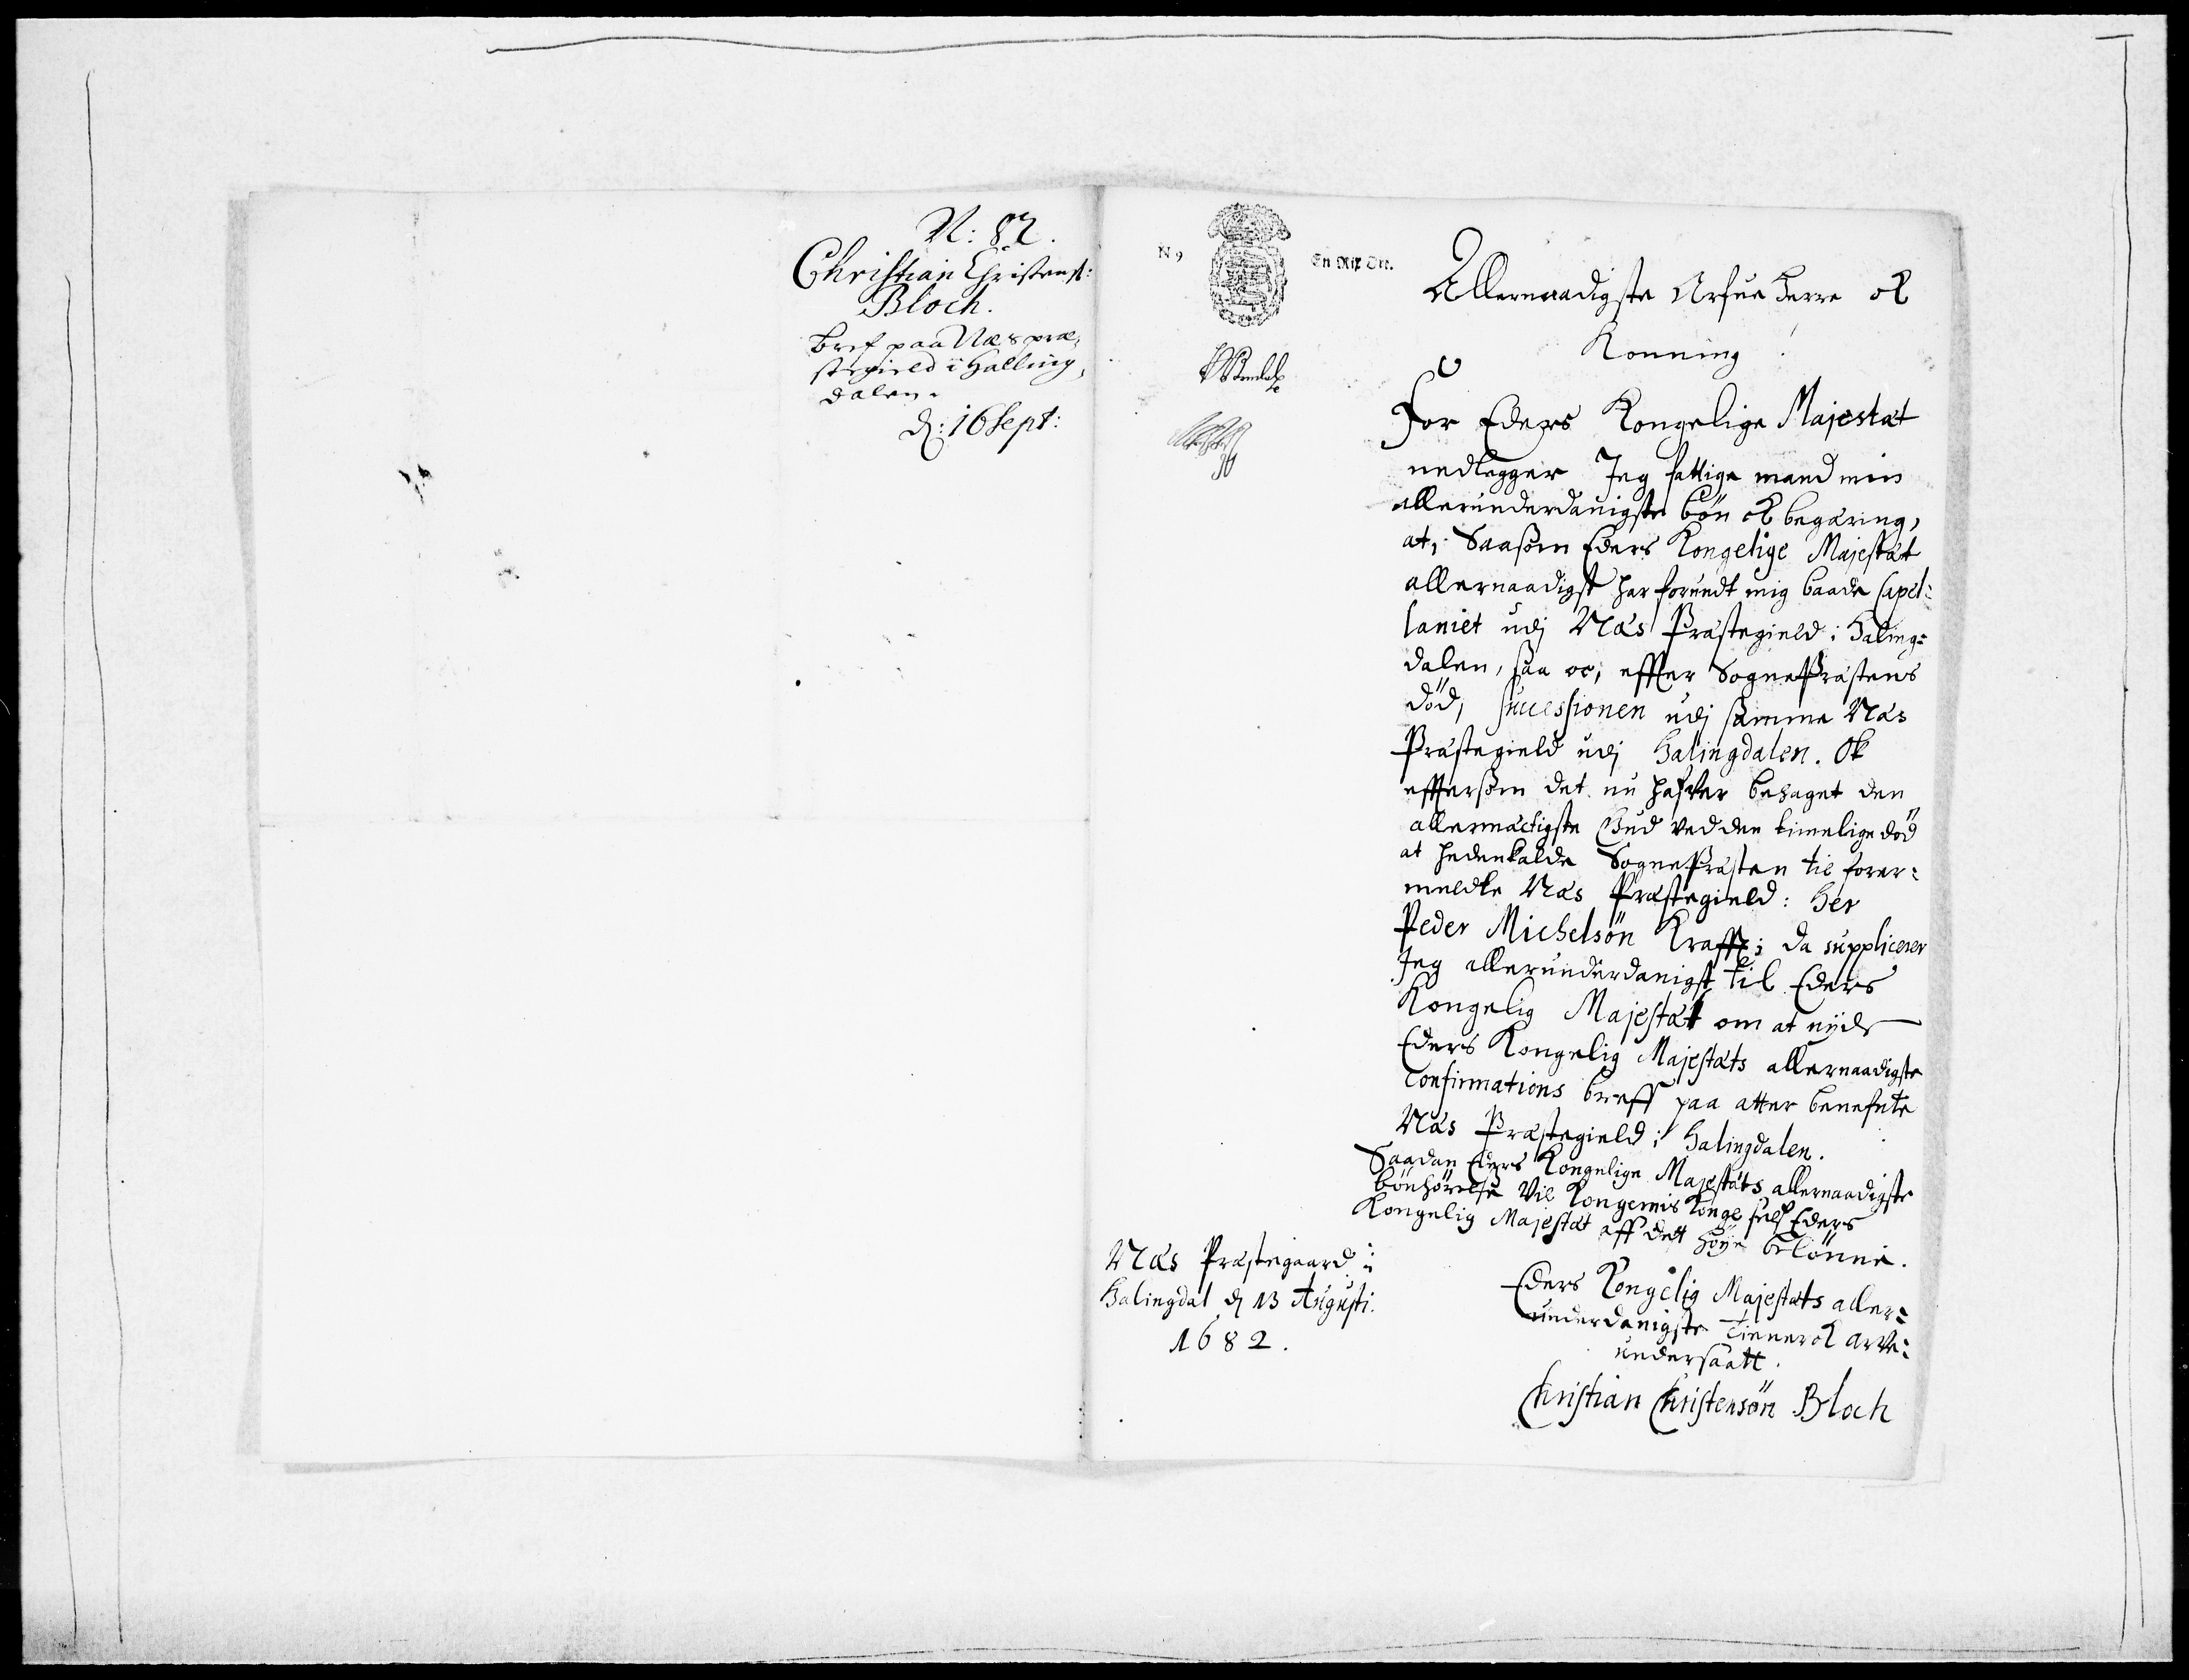 N: 82.
Christian Christens:
Bloch.
bref paa Næs præ,
stegield i Halling,
dalen.
d: 16 Sept:
N 9
En Rix Ort.
Allernaadigste Arfue Herre ok
Konning!
For Eders Kongelige Majestæt
nedlegger Jeg fattige mand min
allerunderdanigste bön ok begæring,
at, Saasom Eders Kongelige Majestæt
allernaadigst har forundt mig baade Capel=
laniet udj Næs Præstegield i Haling=
dalen, saa oc, effter Sognepræstens
död, successionen udj samme Næs
Præstegield udj Halingdalen. Ok
efftersom det nu hafver behaget den
allermæctigste Gud ved den timelige död
at hedenkalde Sognepræsten til forer=
meldte Næs Præstegield: Her
Peder Michelsön Krafft; da supplicerer
Jeg allerunderdanigst til Eders
Kongelig Majestæt om at nijde
Eders Kongelig Majestæts allernaadigste
Confirmations breff paa atter benefnte
Næs Præstegield i Halingdalen.
Saadan Eders Kongelige Majestæts allernaadigste
bönhörelse Vil Kongernis Konge self Eders
Kongelig Majestæt aff dett höye belönne.
Næs Præstegaard i
Halingdal d 13 Augusti.
1682.
Eders Kongelig Majestæts aller=
underdanigste tiener ok arve=
undersaatt.
Christian Christensön Bloch